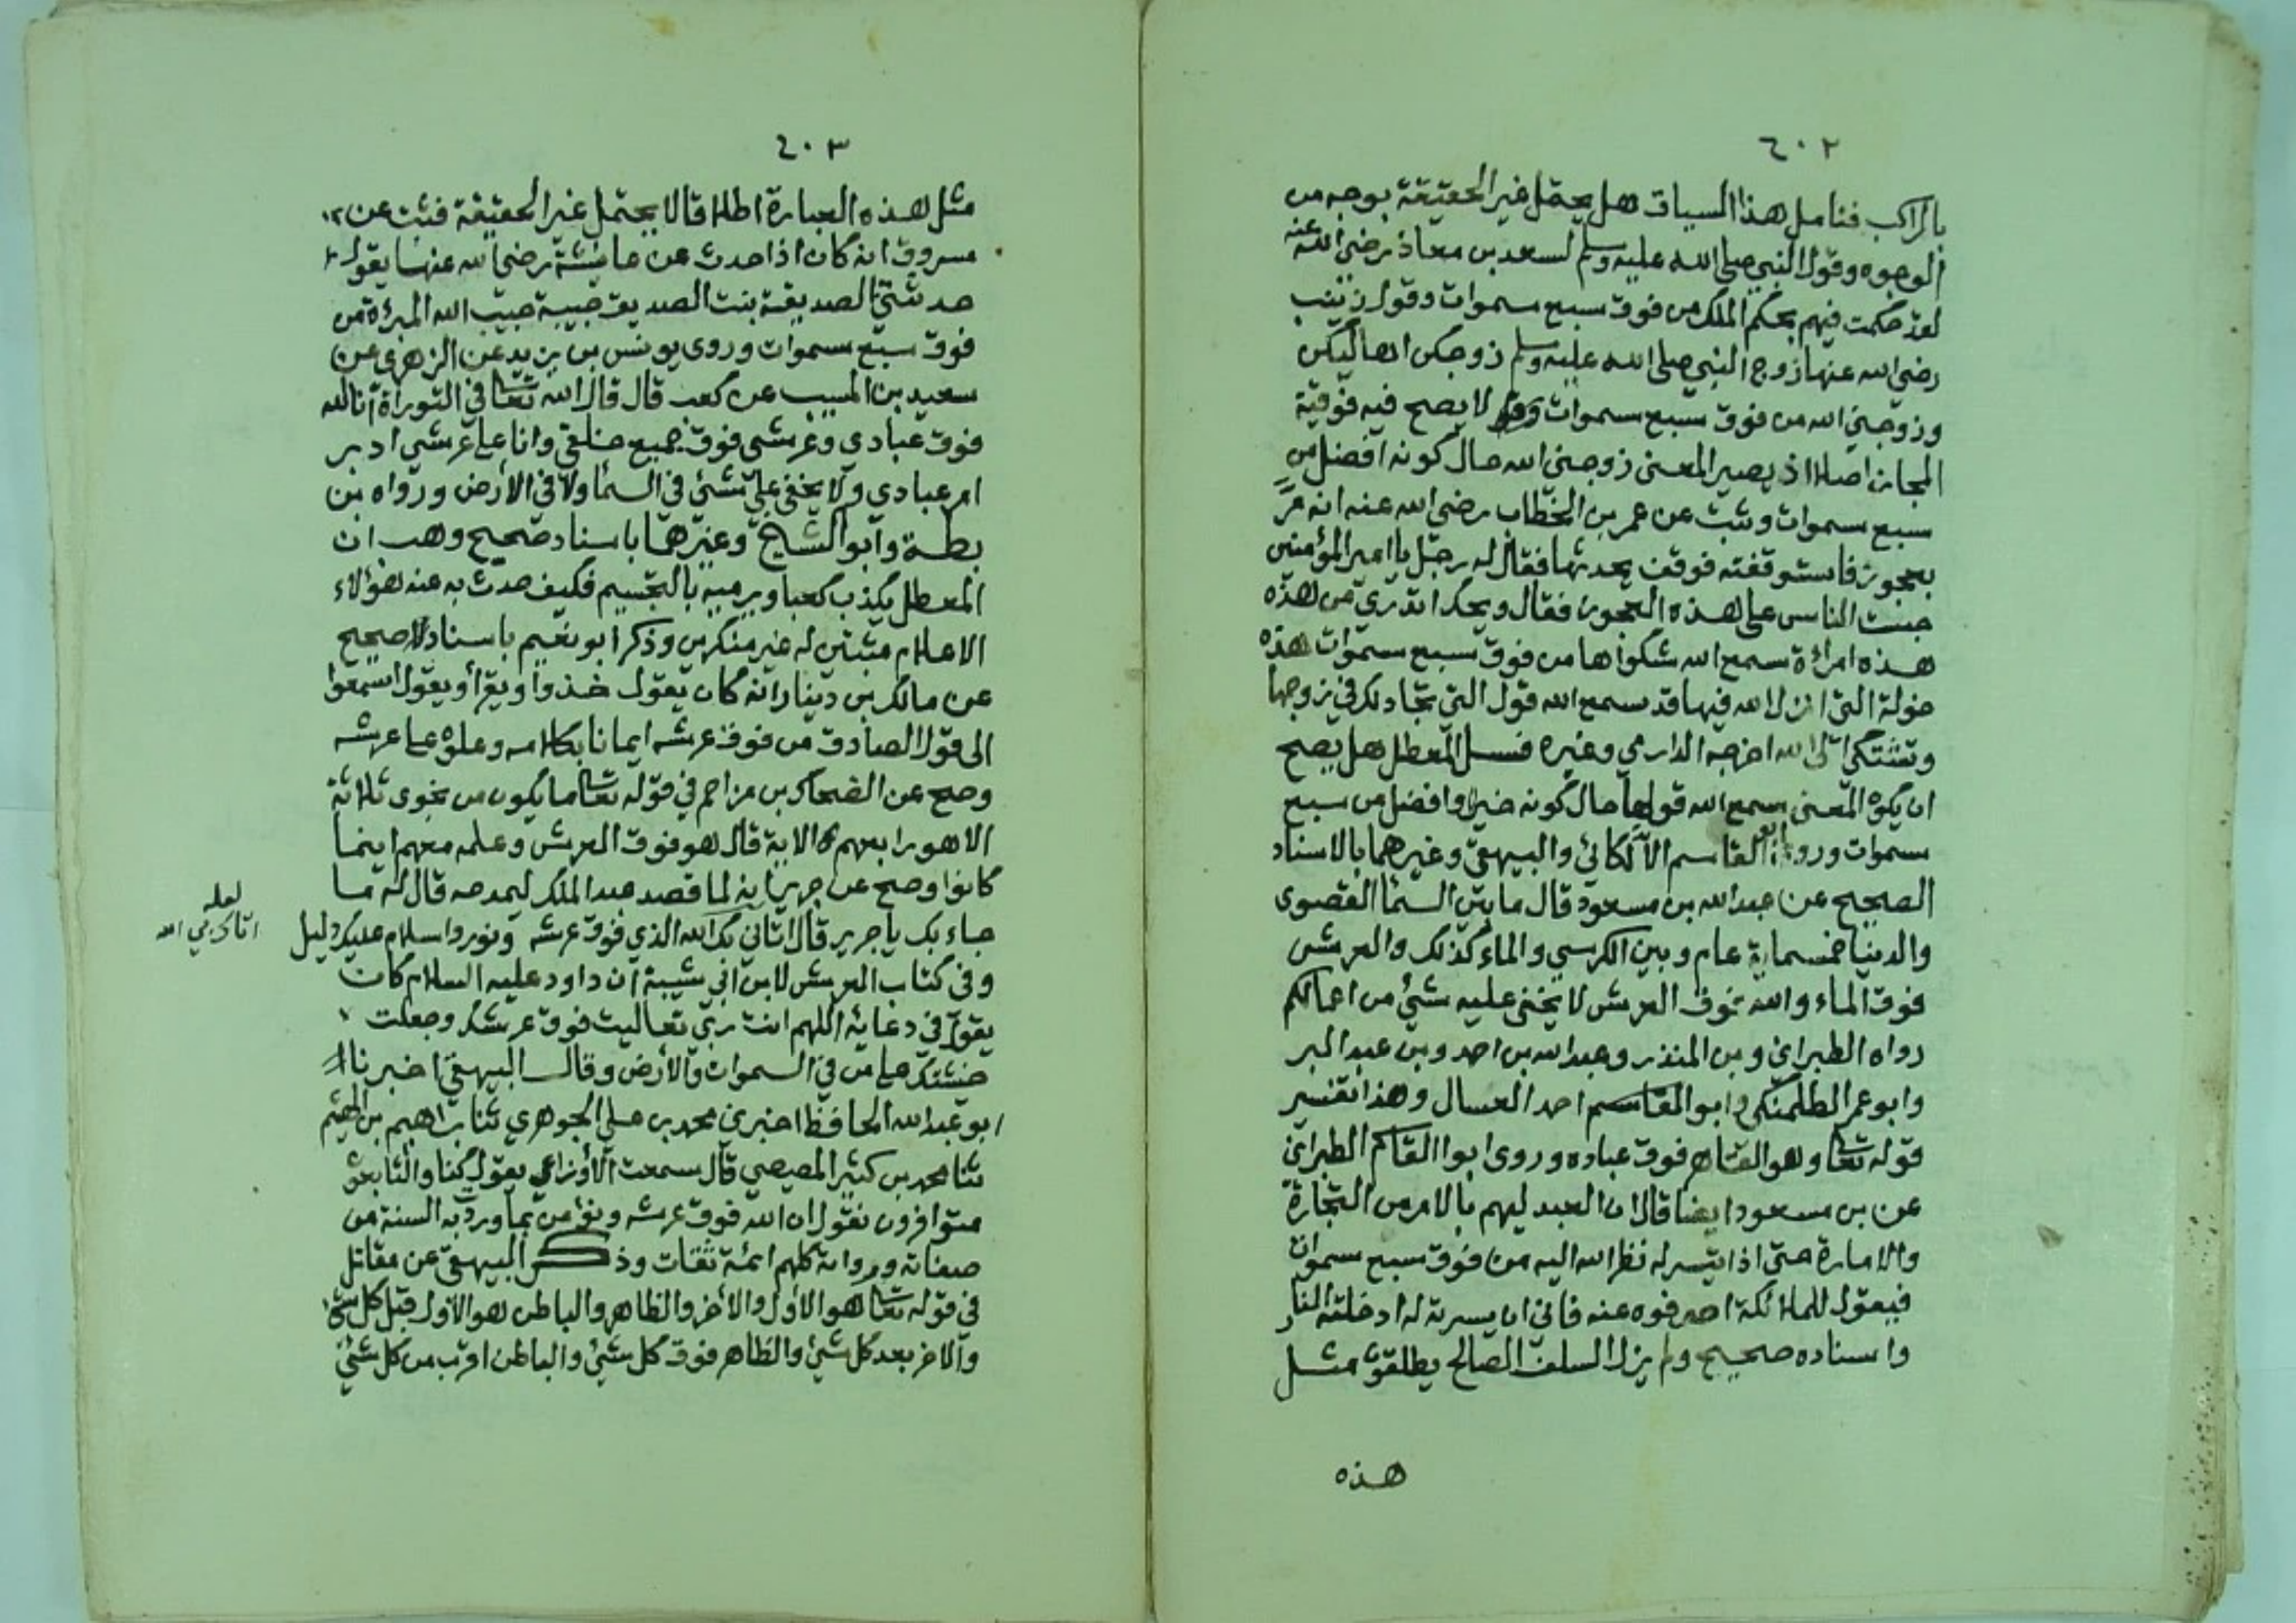 ٤٠٢
بالراكب فتامل هذا السياق هل يحتمل غير الحقيقة بوجه من
الوجوه وقول النبي صلى الله عليه وسلم لسعد بن معاذ رضي الله عنه
لقد حكمت فيهم بحكم الملك من فوق سبع سموات وقول زينب
رضي الله عنها زوج النبي صلى الله عليه وسلم زوجكن اهاليكن
وزوجني الله من فوق سبع سموات لا يصح فيه فوقية
المجاز اصلا اذ يصير المعنى زوجني الله حال كونه افضل من
سبع سموات وثبت عن عمر بن الخطاب رضي الله عنه انه مر
بعجوز فاستوقفته فوقف يحدثها فقال له رجل يا امير المؤمنين
حبست الناس على هذه العجوز فقال ويحك اتدري من هذه
هذه امرأة سمع الله شكواها من فوق سبع سموات هذه
خولة التي انزل الله فيها قد سمع الله قول التي تجادلك في زوجها
وتشتكي الى الله اخرجه الدارمي وغيره فسل المعطل هل يصح
ان يكون المعنى سمع الله قولها حال كونه خيرا وافضل من سبع
سموات وروى ابو القاسم اللالكائي والبيهقي وغيرهما بالاسناد
الصحيح عن عبد الله بن مسعود قال ما بين السما القصوى
والدنيا خمسماية عام وبين الكرسي والماء كذلك والعرش
فوق الماء والله فوق العرش لا يخفى عليه شئ من اعمالكم
رواه الطبراني وبن المنذر وعبد الله بن احمد وبن عبد البر
وابو عمر الطلمنكي وابو القاسم احمد العسال وهذا تفسير
قوله تعالى وهو القاهر فوق عباده وروى ابوا القاسم الطبراني
عن بن مسعود ايضا قال ان العبد ليهم بالامر من التجارة
والامارة حتى اذا تيسر له نظر الله اليه من فوق سبع سموات
فيقول للملائكة اصرفوه عنه فاني ان يسرته له ادخلته النار
واسناده صحيح ولم يزل السلف الصالح يطلقون مثل
هذه
٤٠٣
مثل هذه العبارة اطلاقا لا يحتمل غير الحقيقة فثبت عن
مسروق انه كان اذا حدث عن عائشة رضي الله عنها يقول
حدثتني الصديقة بنت الصديق حبيبة حبيب الله المبرءة من
فوق سبع سموات وروى يونس بن يزيد عن الزهري عن
سعيد بن المسيب عن كعب قال قال الله تعالى في التوراة انا الله
فوق عبادي وعرشي فوق جميع خلقي وانا على عرشي ادبر
امر عبادي ولا يخفى علي شئ في السما ولا في الأرض ورواه بن
بطة وابو الشيخ وغيرهما باسناد صحيح وهب ان
المعطل يكذب كعبا ويرميه بالتجسيم فكيف حدث به عنه هؤلاء
الاعلام مثبتين له غير منكرين وذكر ابو نعيم باسناد صحيح
عن مالك بن دينار انه كان يقول خذوا ويقرأ ويقول اسمعوا
الى قول الصادق من فوق عرشه ايمانا بكلامه وعلوه على عرشه
وصح عن الضحاك بن مزاحم في قوله تعالى ما يكون من نجوى ثلاثة
الا هو رابعهم الاية قال هو فوق العرش وعلمه معهم اينما
كانوا وصح عن جرير انه لما قصد عبد الملك ليمدحه قال له ما
جاء بك يا جرير قال اتاني بك الله الذي فوق عرشه ونور واسلام عليك دليل
لعله
اتاك بي الله
وفي كتاب العرش لابن ابي شيبة ان داود عليه السلام كان
يقول في دعائه اللهم انت ربي تعاليت فوق عرشك وجعلت
خشيتك على من في السموات والأرض وقال البيهقي اخبرنا
ابو عبد الله الحافظ اخبرني محمد بن علي الجوهري ثنا ابراهيم بن الهيثم
ثنا محمد بن كثير المصيصي قال سمعت الأوزاعي يقول كنا والتابعون
متوافرون نقول ان الله فوق عرشه ونؤمن بما وردت به السنة من
صفاته ورواته كلهم ائمة ثقات وذكر البيهقي عن مقاتل
في قوله تعالى هو الأول والأخر والظاهر والباطن هو الأول قبل كل شئ
والاخر بعد كل شئ والظاهر فوق كل شئ والباطن اقرب من كل شئ